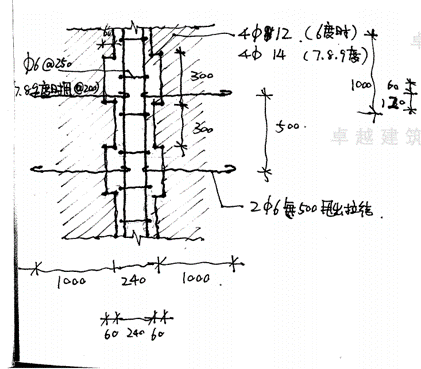 4Φ12 (6度时)
4Φ14 (7.8.9度)
60
Φ6@250
7.8.9度时用@200)
300
300
500
1000
60
120
卓
卓越建筑
2Φ6每500甩出拉结.
1000 240 1000
60 240 60